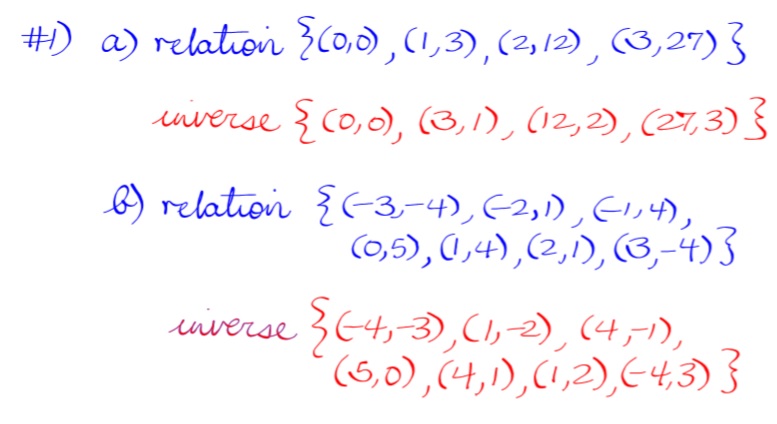 #1) a) relation {(0,0), (1,3), (2,12), (3,27)}
inverse {(0,0), (3,1), (12,2), (27,3)}
b) relation {(-3,-4), (-2,1), (-1,4),
(0,5), (1,4), (2,1), (3,-4)}
inverse {(-4,-3), (1,-2), (4,-1),
(5,0), (4,1), (1,2), (-4,3)}